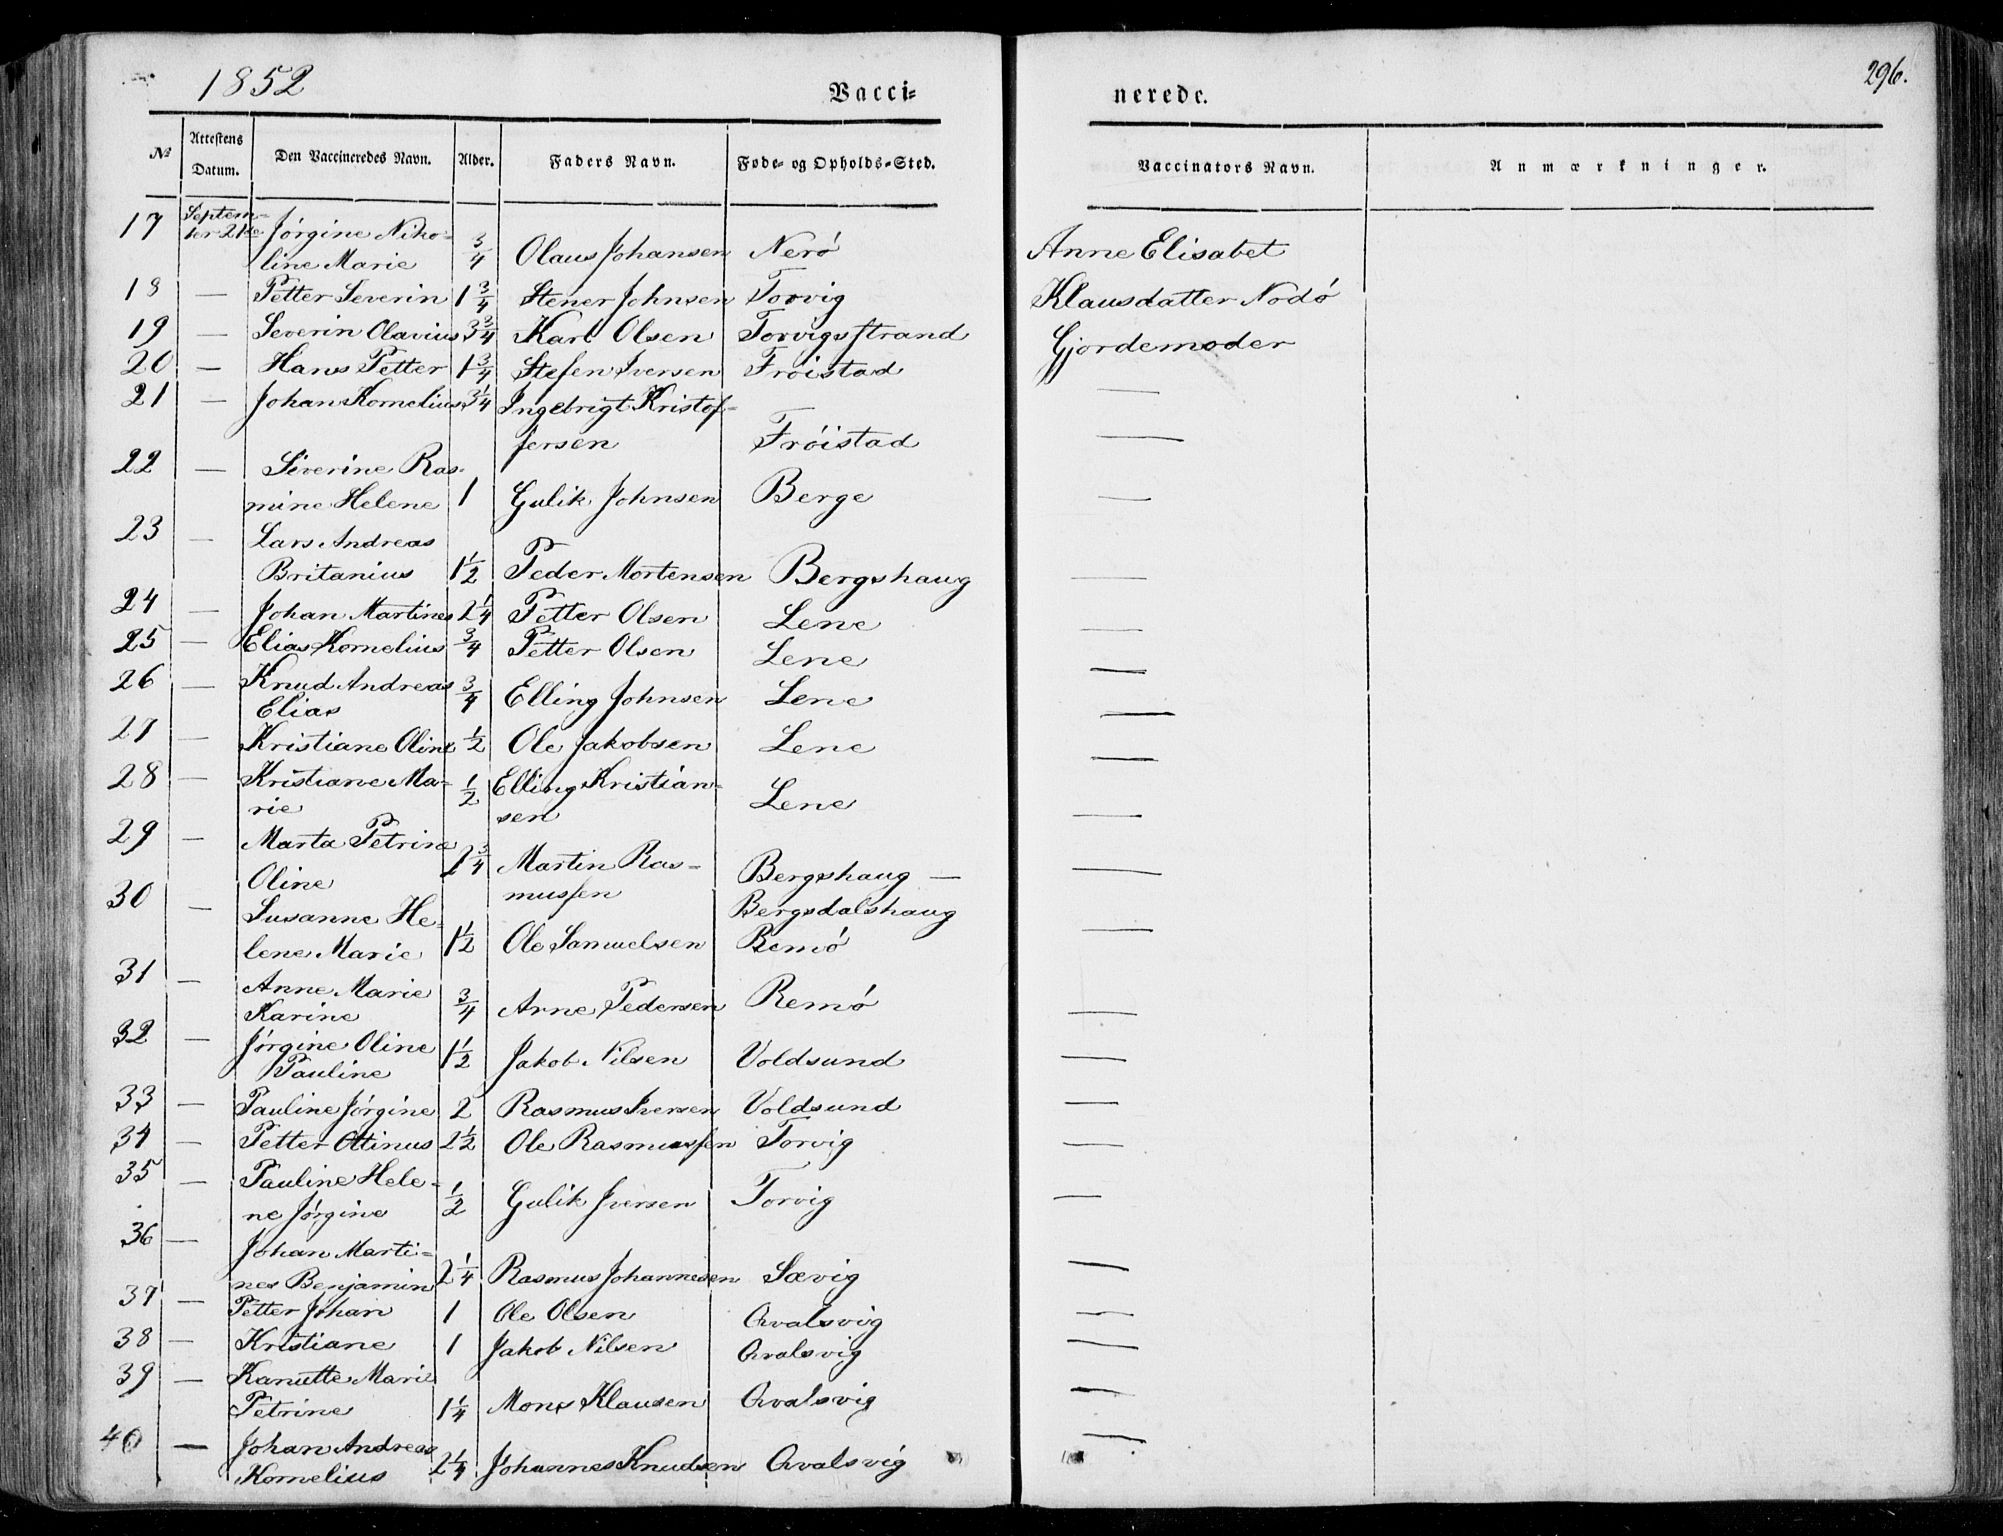 1852 Vacci= nerede. 296.
No Attestens Datum. Den Vaccineredes Navn. Alder. Faders Navn. Føde= og Opholds=Sted. Vaccinators Navn. Anmærkninger.
17 Septem=
ber 21de Jørgine Niko=
line Marie 3/4 Olaus Johansen Nerø Anne Elisabet
18 — Petter Severin 1 3/4 Stener Johnsen Torvig Klausdatter Nodø
19 — Severin Olavius 3 3/4 Karl Olsen Torvigsstrand Gjordemoder
20 — Hans Petter 1 3/4 Stefen Iversen Frøistad —
21 — Johan Kornelius 3 1/4 Ingebrigt Kristof=
fersen Frøistad —
22 — Severine Ras=
mine Helene 1 Gulik Johnsen Berge —
23 — Lars Andreas
Britanius 1 1/2 Peder Mortensen Bergshaug —
24 — Johan Martines 2 1/4 Petter Olsen Lene —
25 — Elias Kornelius 3/4 Petter Olsen Lene —
26 — Knud Andreas
Elias 3/4 Elling Johnsen Lene —
27 — Kristiane Oline 1/2 Ole Jakobsen Lene —
28 — Kristiane Ma=
rie 1/2 Elling Kristian=
sen Lene —
29 — Marta Petrine
Oline 2 3/4 Martin Ras=
mussen Bergshaug —
Bergsdalshaug —
30 — Susanne He=
lene Marie 1 1/2 Ole Samuelsen Remø —
31 — Anne Marie
Karine 3/4 Arne Pedersen Remø —
32 — Jørgine Oline
Pauline 1 1/2 Jakob Nilsen Voldsund —
33 — Pauline Jørgine 2 Rasmus Iversen Voldsund —
34 — Petter Ottinus 2 1/2 Ole Rasmussen Torvig —
35 — Pauline Hele=
ne Jørgine 1/2 Gulik Iversen Torvig —
36 — Johan Marti=
nes Benjamin 2 1/4 Rasmus Johannesen Sævig —
37 — Petter Johan 1 Ole Olsen Qvalsvig —
38 — Kristiane 1 Jakob Nilsen Qvalsvig —
39 — Kanutte Marie
Petrine 1 1/4 Mons Klausen Qvalsvig —
40 — Johan Andreas
Kornelius 2 1/4 Johannes Knudsen Qvalsvig —